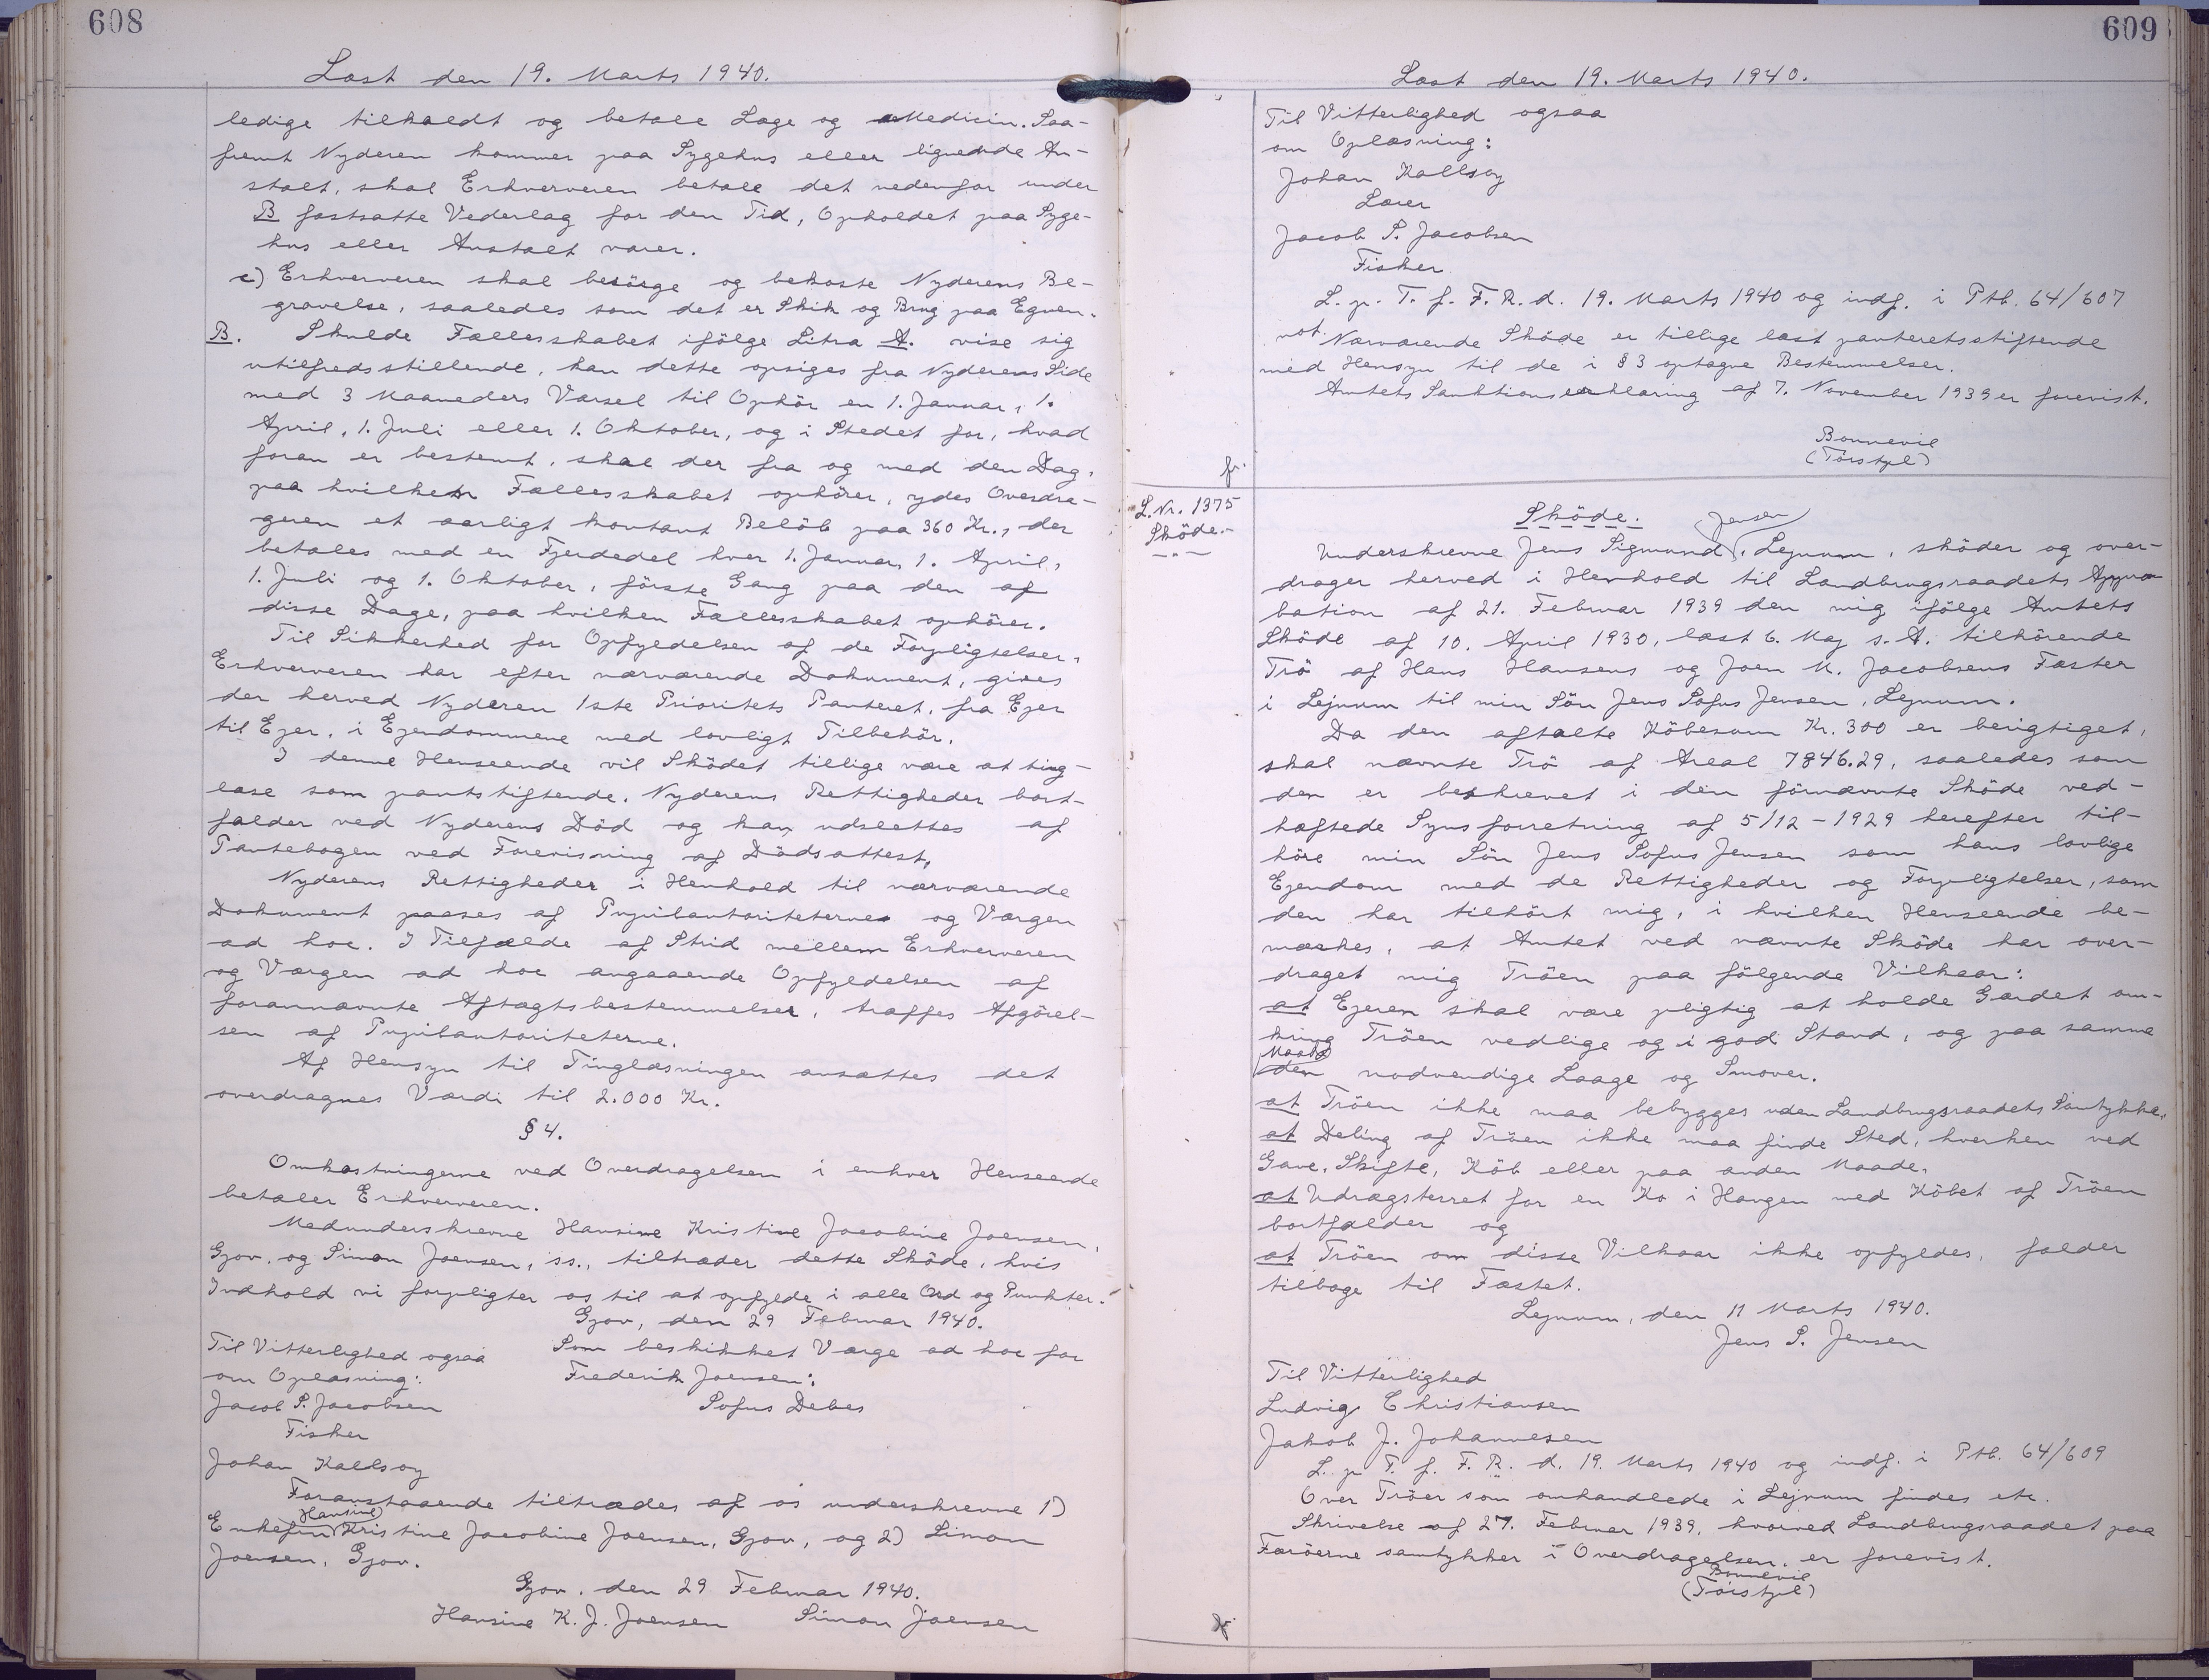 608
Læst den 19. Marts 1940.
ledige tilkaldt og betale Læge og Medicin. Saa-
fremt Nyderen kommer paa Sygehus eller lignende An-
stalt, skal Erhververen betale det nedenfor under
B fastsatte Vederlag for den Tid, Opholdet paa Syge-
hus eller Anstalt varer.
c) Erhververen skal besörge og bekoste Nyderens Be-
gravelse, saaledes som det er Skik og Brug paa Egnen.
B. Skulde Fællesskabet ifölge Litra A. vise sig
utilfredsstillende, kan dette opsiges fra Nyderens Side
med 3 Maaneders Varsel til Ophör en 1. Januar, 1.
April, 1. Juli eller 1. Oktober, og i Stedet for, hvad
foran er bestemt, skal der fra og med den Dag,
paa hvilken Fællesskabet ophörer, ydes Overdra-
geren et aarligt kontant Belöb paa 360 Kr., der
betales med en Fjerdedel hver 1. Januar, 1. April,
1. Juli og 1. Oktober, förste Gang paa den af
disse Dage, paa hvilken Fællesskabet ophörer.
Til Sikkerhed for Opfyldelsen af de Forpligtelser,
Erhververen har efter nærværende Dokument, gives
der herved Nyderen 1ste Prioritets Panteret, fra Ejer
til Ejer, i Ejendommene med lovligt Tilbehör.
I denne Henseende vil Sködet tillige være at ting-
læse som pantstiftende. Nyderens Rettigheder bort-
falder ved Nyderens Död og kan udslettes af
Pantebogen ved Forevisning af Dödsattest,
Nyderens Rettigheder i Henhold til nærværende
Dokument paases af Pupilautoriteterne og Værgen
ad hoc. I Tilfælde af Strid mellem Erhververen
og Værgen ad hoc angaaende Opfyldelsen af
forannævnte Aftægtsbestemmelser, træffes Afgörel-
sen af Pupilautoriteterne.
Af Hensyn til Tinglæsningen ansættes det
overdragnes Værdi til 2.000 Kr.
§ 4.
Omkostningerne ved Overdragelsen i enhver Henseende
betaler Erhververen.
Medunderskrevne Hansine Kristine Jacobine Joensen,
Gjov. og Simon Joensen, ss., tiltræder dette Sköde, hvis
Indhold vi forpligter os til at opfylde i alle Ord og Punkter.
Gjov, den 29 Februar 1940.
Til Vitterlighed ogsaa
om Oplæsning:
Jacob P. Jacobsen
Fisker
Johan Kallsoy
Som beskikket Værge ad hoc for
Frederik Joensen:
Sofus Debes
Foranstaaende tiltrædes af os underskrevne 1)
Hansine
Enkefru Kristine Jacobine Joensen, Gjov, og 2) Simon
Joensen, Gjov.
Gjov. den 29 Februar 1940.
Hansine K. J. Joensen Simon Joensen
609
Læst den 19. Marts 1940.
Til Vitterlighed ogsaa
om Oplæsning:
Johan Kallsoy
Lærer
Jacob P. Jacobsen
Fisker
L. p. T. f. F. R. d. 19. Marts 1940 og indf. i Ptb. 64/607
not. Nærværende Sköde er tillige læst panteretsstiftende
med Hensyn til de i § 3 optagne Bestemmelser.
Amtets Sanktionserklæring af 7. November 1939 er forevist.
Bonnevie
L. Nr. 1375
Sköde.-
Sköde.
Jensen
Underskrevne Jens Sigmund, Lejnum, sköder og over-
drager herved i Henhold til Landbrugsraadets Appro
bation af 21. Februar 1939 den mig ifölge Amtets
Sköde af 10. April 1930, læst 6. Maj s. A. tilhörende
Trö af Hans Hansens og Joen M. Jacobsens Fæster
i Lejnum til min Sön Jens Sofus Jensen, Lejnum.
Da den aftalte Köbesum Kr. 300 er berigtiget,
skal nævnte Trö af Areal 7846.29, saaledes som
den er beskrevet i den förnævnte Sköde ved-
hæftede Synsforretning af 5/12 - 1929 herefter til-
höre min Sön Jens Sofus Jensen som hans lovlige
Ejendom med de Rettigheder og Forpligtelser, som
den har tilhört mig, i hvilken Henseende be-
mærkes, at Amtet ved nævnte Sköde har over-
draget mig Tröen paa fölgende Vilkaar:
at Ejeren skal være pligtig at holde Gærdet om-
kring Tröen vedlige og i god Stand, og paa samme
Maade
den nødvendige Laage og Smover.
at Tröen ikke maa bebygges uden Landbrugsraadets Samtykke,
at Deling af Tröen ikke maa finde Sted, hverken ved
Gave, Skifte, Köb eller paa anden Maade,
at Udrægsterret for en Ko i Haugen med Köbet af Tröen
bortfalder og
at Tröen om disse Vilkaar ikke opfyldes, falder
tilbage til Fæstet.
Lejnum, den 11 Marts 1940.
Jens S. Jensen
Til Vitterlighed
Ludvig Christiansen
Jakob J. Johannesen
L. p. T. f. F. R. d. 19. Marts 1940 og indf. i Ptb. 64/609
Over Tröer som omhandlede i Lejnum findes etc.
Skrivelse af 27. Februar 1939, hvorved Landbrugsraadet paa
Færöerne samtykker i Overdragelsen, er forevist.
Bonnevie